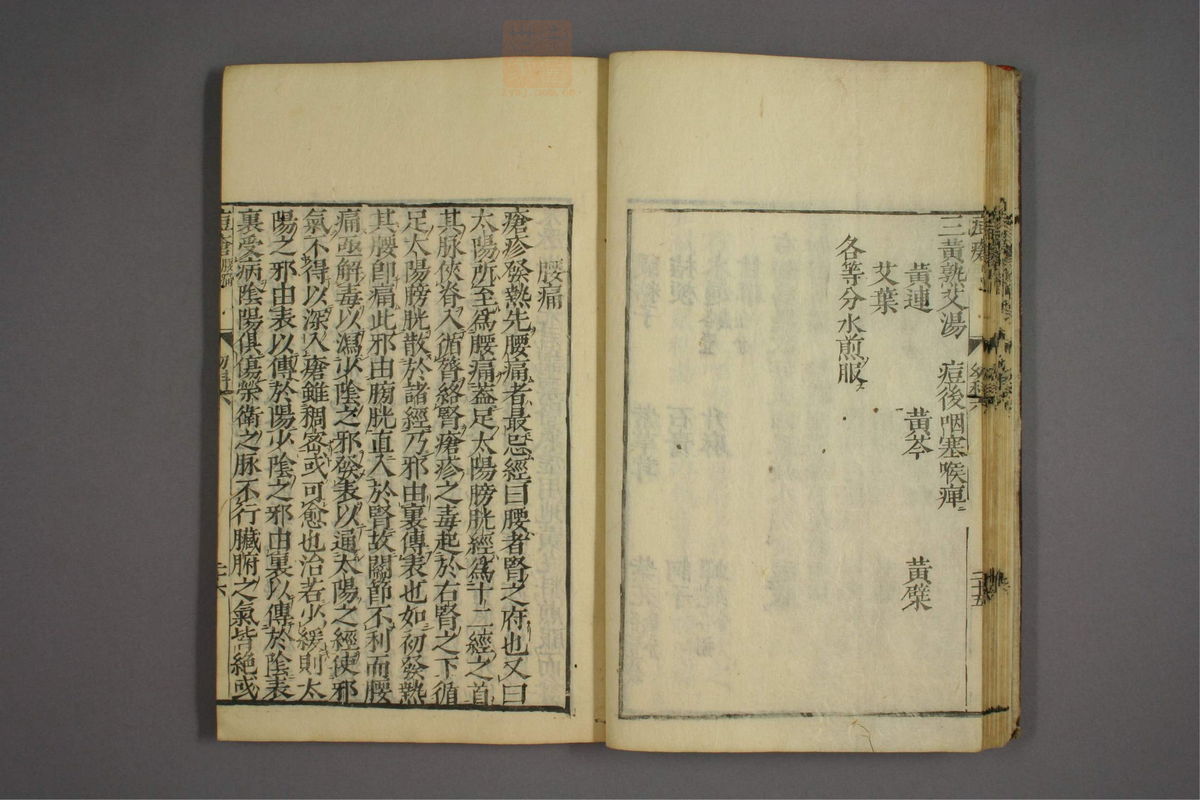 三黃熟艾湯 痘後咽塞喉痺
黃連 黃芩 黃檗
艾葉
各等分水煎服
二十五
腰痛
瘡疹發熱先腰痛者最忌經曰腰者腎之府也又曰
太陽所至為腰痛葢足太陽膀胱經為十二經之首
其脉俠脊入循膂絡腎瘡疹之毒起於右腎之下循
足太陽膀胱散於諸經乃邪由裏傳表也如初發熱
其腰卽痛此邪由膀胱直入於腎故關節不利而腰
痛亟解毒以瀉少陰之邪發表以通太陽之經使邪
氣不得以深入瘡雖稠宻或可愈也治若少緩則太
陽之邪由表以傳於陽少陰之邪由裏以傳於陰表
裏受病陰陽俱傷榮衛之脉不行臟腑之氣皆絕或
痘瘡腰痛 幼科六 二十六